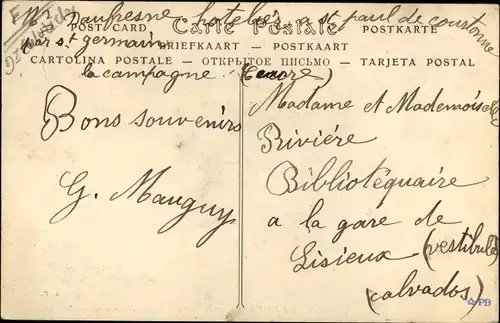 Daufresne hotel a st paul de courtonne
par st germain
la campagne (Eure)
POST CARD Carte Postale POSTKARTE
BRIEFKAART — POSTKAART
CARTOLINA POSTALE — ОТКРЫТОЕ ПИСЬМО — TARJETA POSTAL
Bons souvenirs
G. Mauguy
Madame et Mademoiselle
Rivière
Bibliotéquaire
a la gare de
Lisieux (vestibule)
(calvados)
PB